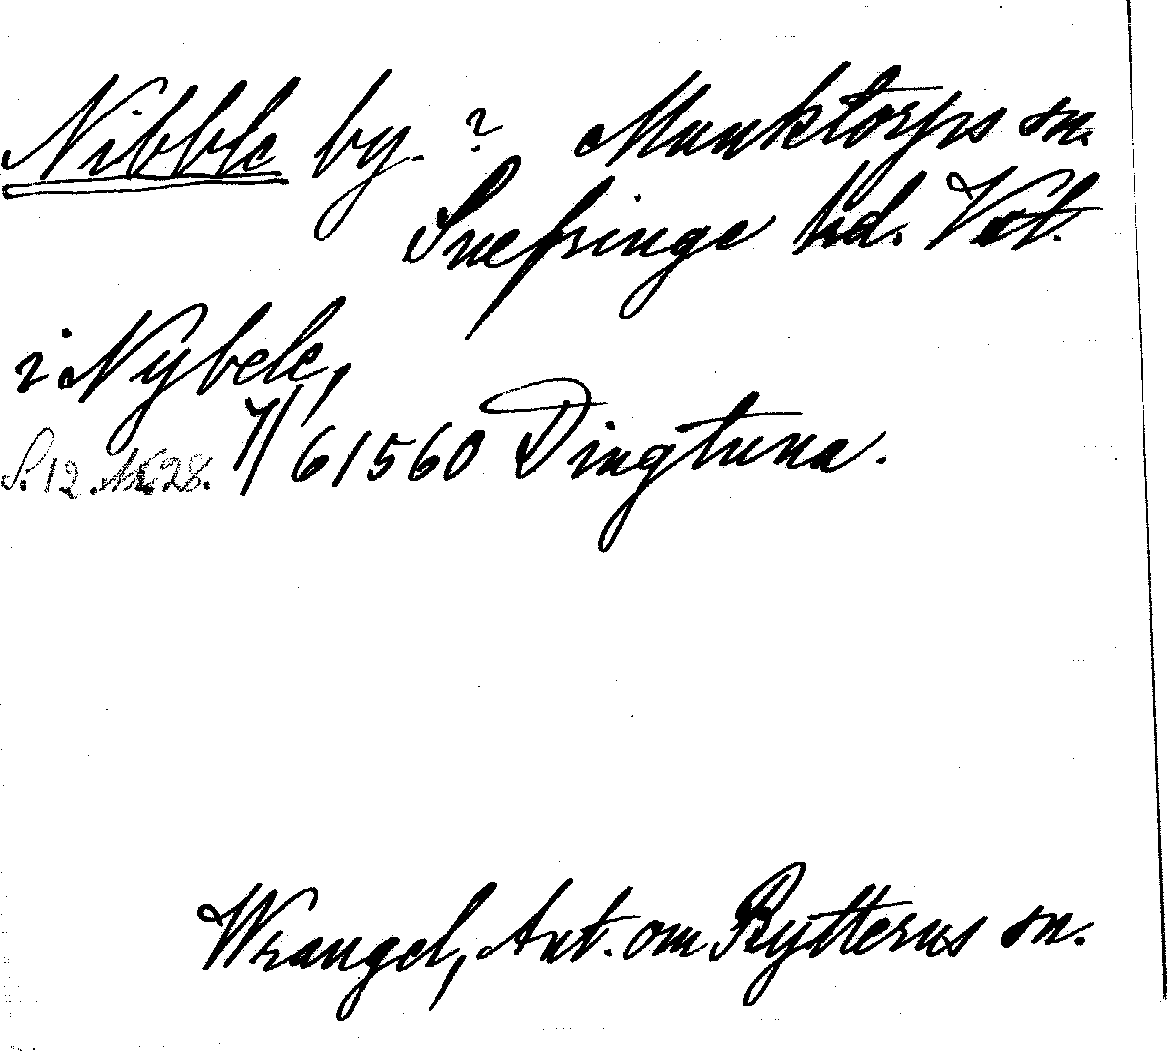 Nibble by. ? Munktorps sn.
Snefringe hd. Vst.
i Nybele,
S. 12. Nr. 28. 7/6 1560 Dingtuna.
Wrangel, Ant. om Rytterns sn.